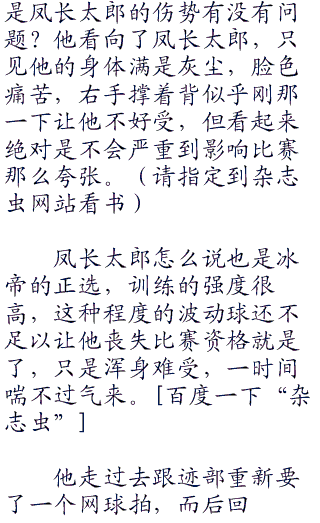 是凤长太郎的伤势有没有问
题？他看向了凤长太郎，只
见他的身体满是灰尘，脸色
痛苦，右手撑着背似乎刚那
一下让他不好受，但看起来
绝对是不会严重到影响比赛
那么夸张。（请指定到杂志
虫网站看书）
凤长太郎怎么说也是冰
帝的正选，训练的强度很
高，这种程度的波动球还不
足以让他丧失比赛资格就是
了，只是浑身难受，一时间
喘不过气来。[百度一下“杂
志虫”]
他走过去跟迹部重新要
了一个网球拍，而后回